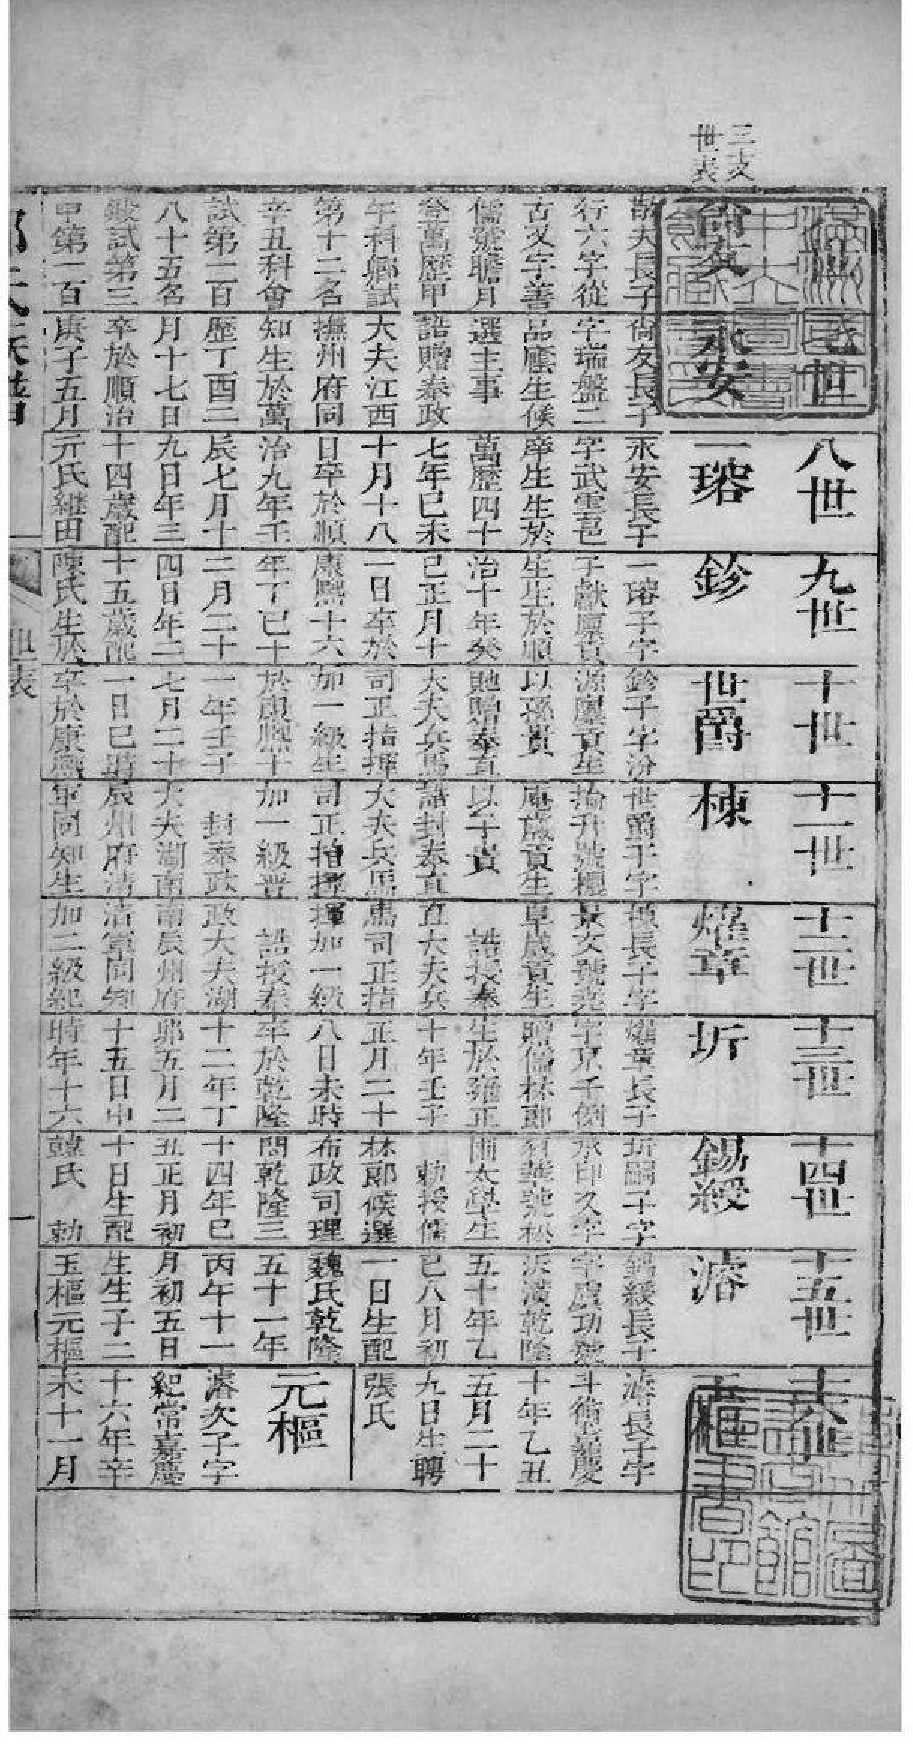 三支
世表
尚友
長子
行六字從
古又字善
儒號瞻月
登萬歷甲
午科鄉試
第十二名
辛丑科會
試第二百
八十五名
殿試第三
甲第一百
世
永安
尚友長子
字瑞盤二
品廕生候
選主事
誥贈奉政
大夫江西
撫州府同
知生於萬
歷丁酉二
月十七日
卒於順治
庚子五月
八世
一瑢
永安長子
字武雲邑
庠生生於
萬歷四十
七年已未
十月十八
日卒於順
治九年壬
辰七月十
九日年三
十四歲配
元氏繼田
九世
鉁
一瑢子字
子獻廩貢
生生於順
治十年癸
已正月十
一日卒於
康熙十六
年丁已十
二月二十
四日年二
十五歲配
陳氏生於
十世
世爵
鉁子字汾
源廩貢生
以孫貴
馳贈奉直
大夫兵馬
司正指揮
加一級生
於康熙十
一年壬子
七月二十
一日巳時
卒於康熙
十一世
棟
世爵子字
掄升號
歲貢生
以子貴
誥封奉直
大夫兵馬
司正指揮
加一級晋
封奉政
大夫湖南
辰州府清
軍同知生
十二世
燿章
棟長子字
景文號堯
章歲貢生
誥授奉
直大夫兵
馬司正指
揮加一級
誥授奉
政大夫湖
南辰州府
清軍同知
加二級紀
十三世
圻
燿章長子
字京千
贈儒林郎
生於雍正
十年壬子
正月二十
八日未時
卒於乾隆
十二年丁
卯五月二
十五日申
時年十六
十四世
錫綬
圻嗣子字
承印又字
華號松
圃太學生
勅授儒
林郎候選
布政司理
問乾隆三
十四年巳
丑正月初
十日生配
韓氏 勅
十五世
濬
錫綬長子
字廣功號
浜乾隆
五十年乙
已八月初
一日生配
魏氏乾隆
五十一年
丙午十一
月初五日
生生子二
玉樞元樞
十六世
樞
濬長子字
斗衡嘉慶
十年乙丑
五月二十
九日生聘
張氏
元樞
濬次子字
紀常嘉慶
十六年辛
未十一月
世表
一